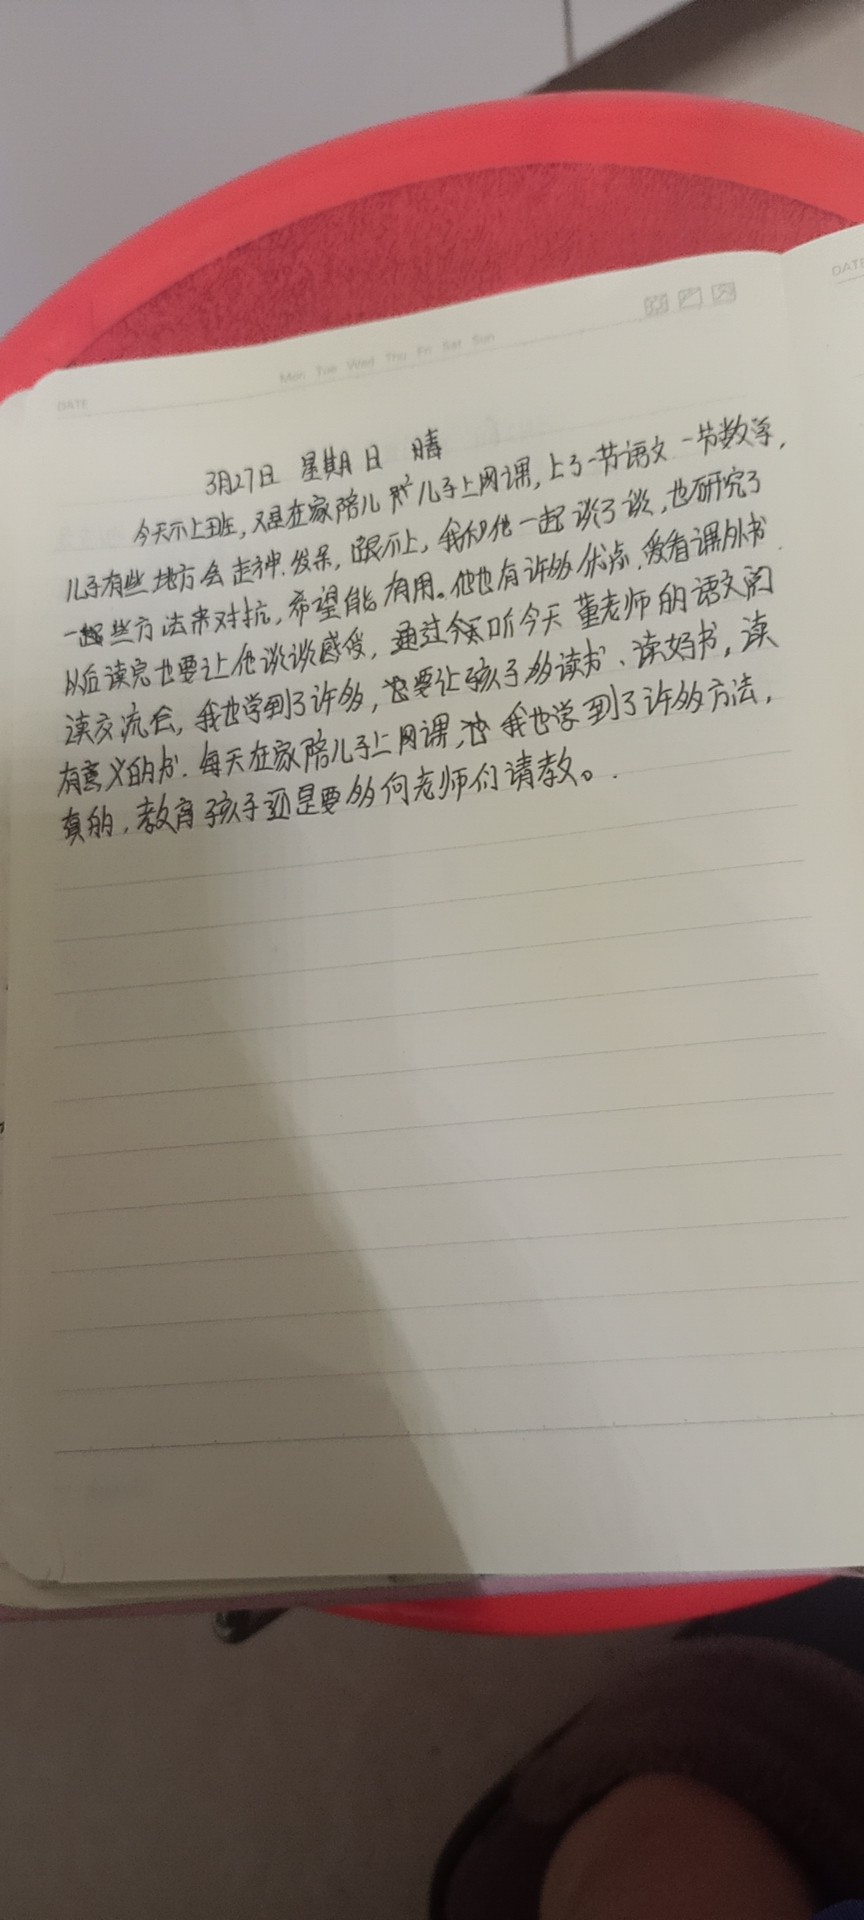 DATE
Mon Tue Wed Thu Fri Sat Sun
DATE
3月27日 星期日 晴
今天不上班，又是在家陪儿子上网课，上了一节语文一节数学，
儿子有些地方会走神、发呆，跟不上，我和他一起谈了谈，也研究了
一些方法来对抗，希望能有用。他也有许多优点，爱看课外书
以后读完也要让他谈谈感受，通过听今天董老师的语文阅
读交流会，我也学到了许多，要让孩子多读书、读好书，读
有意义的书。每天在家陪儿子上网课，我也学到了许多方法，
真的，教育孩子还是要多向老师们请教。